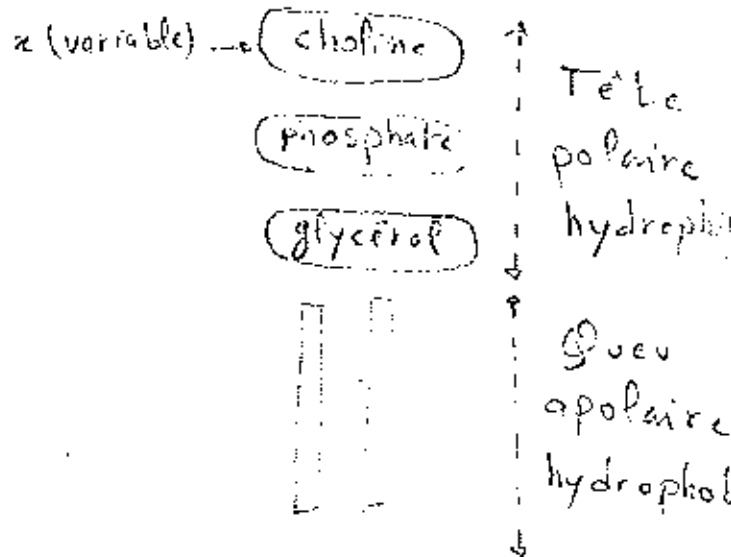 x (variable) → choline
phosphate
glycérol
Tête
polaire
hydrophi
Queu
apolaire
hydrophob